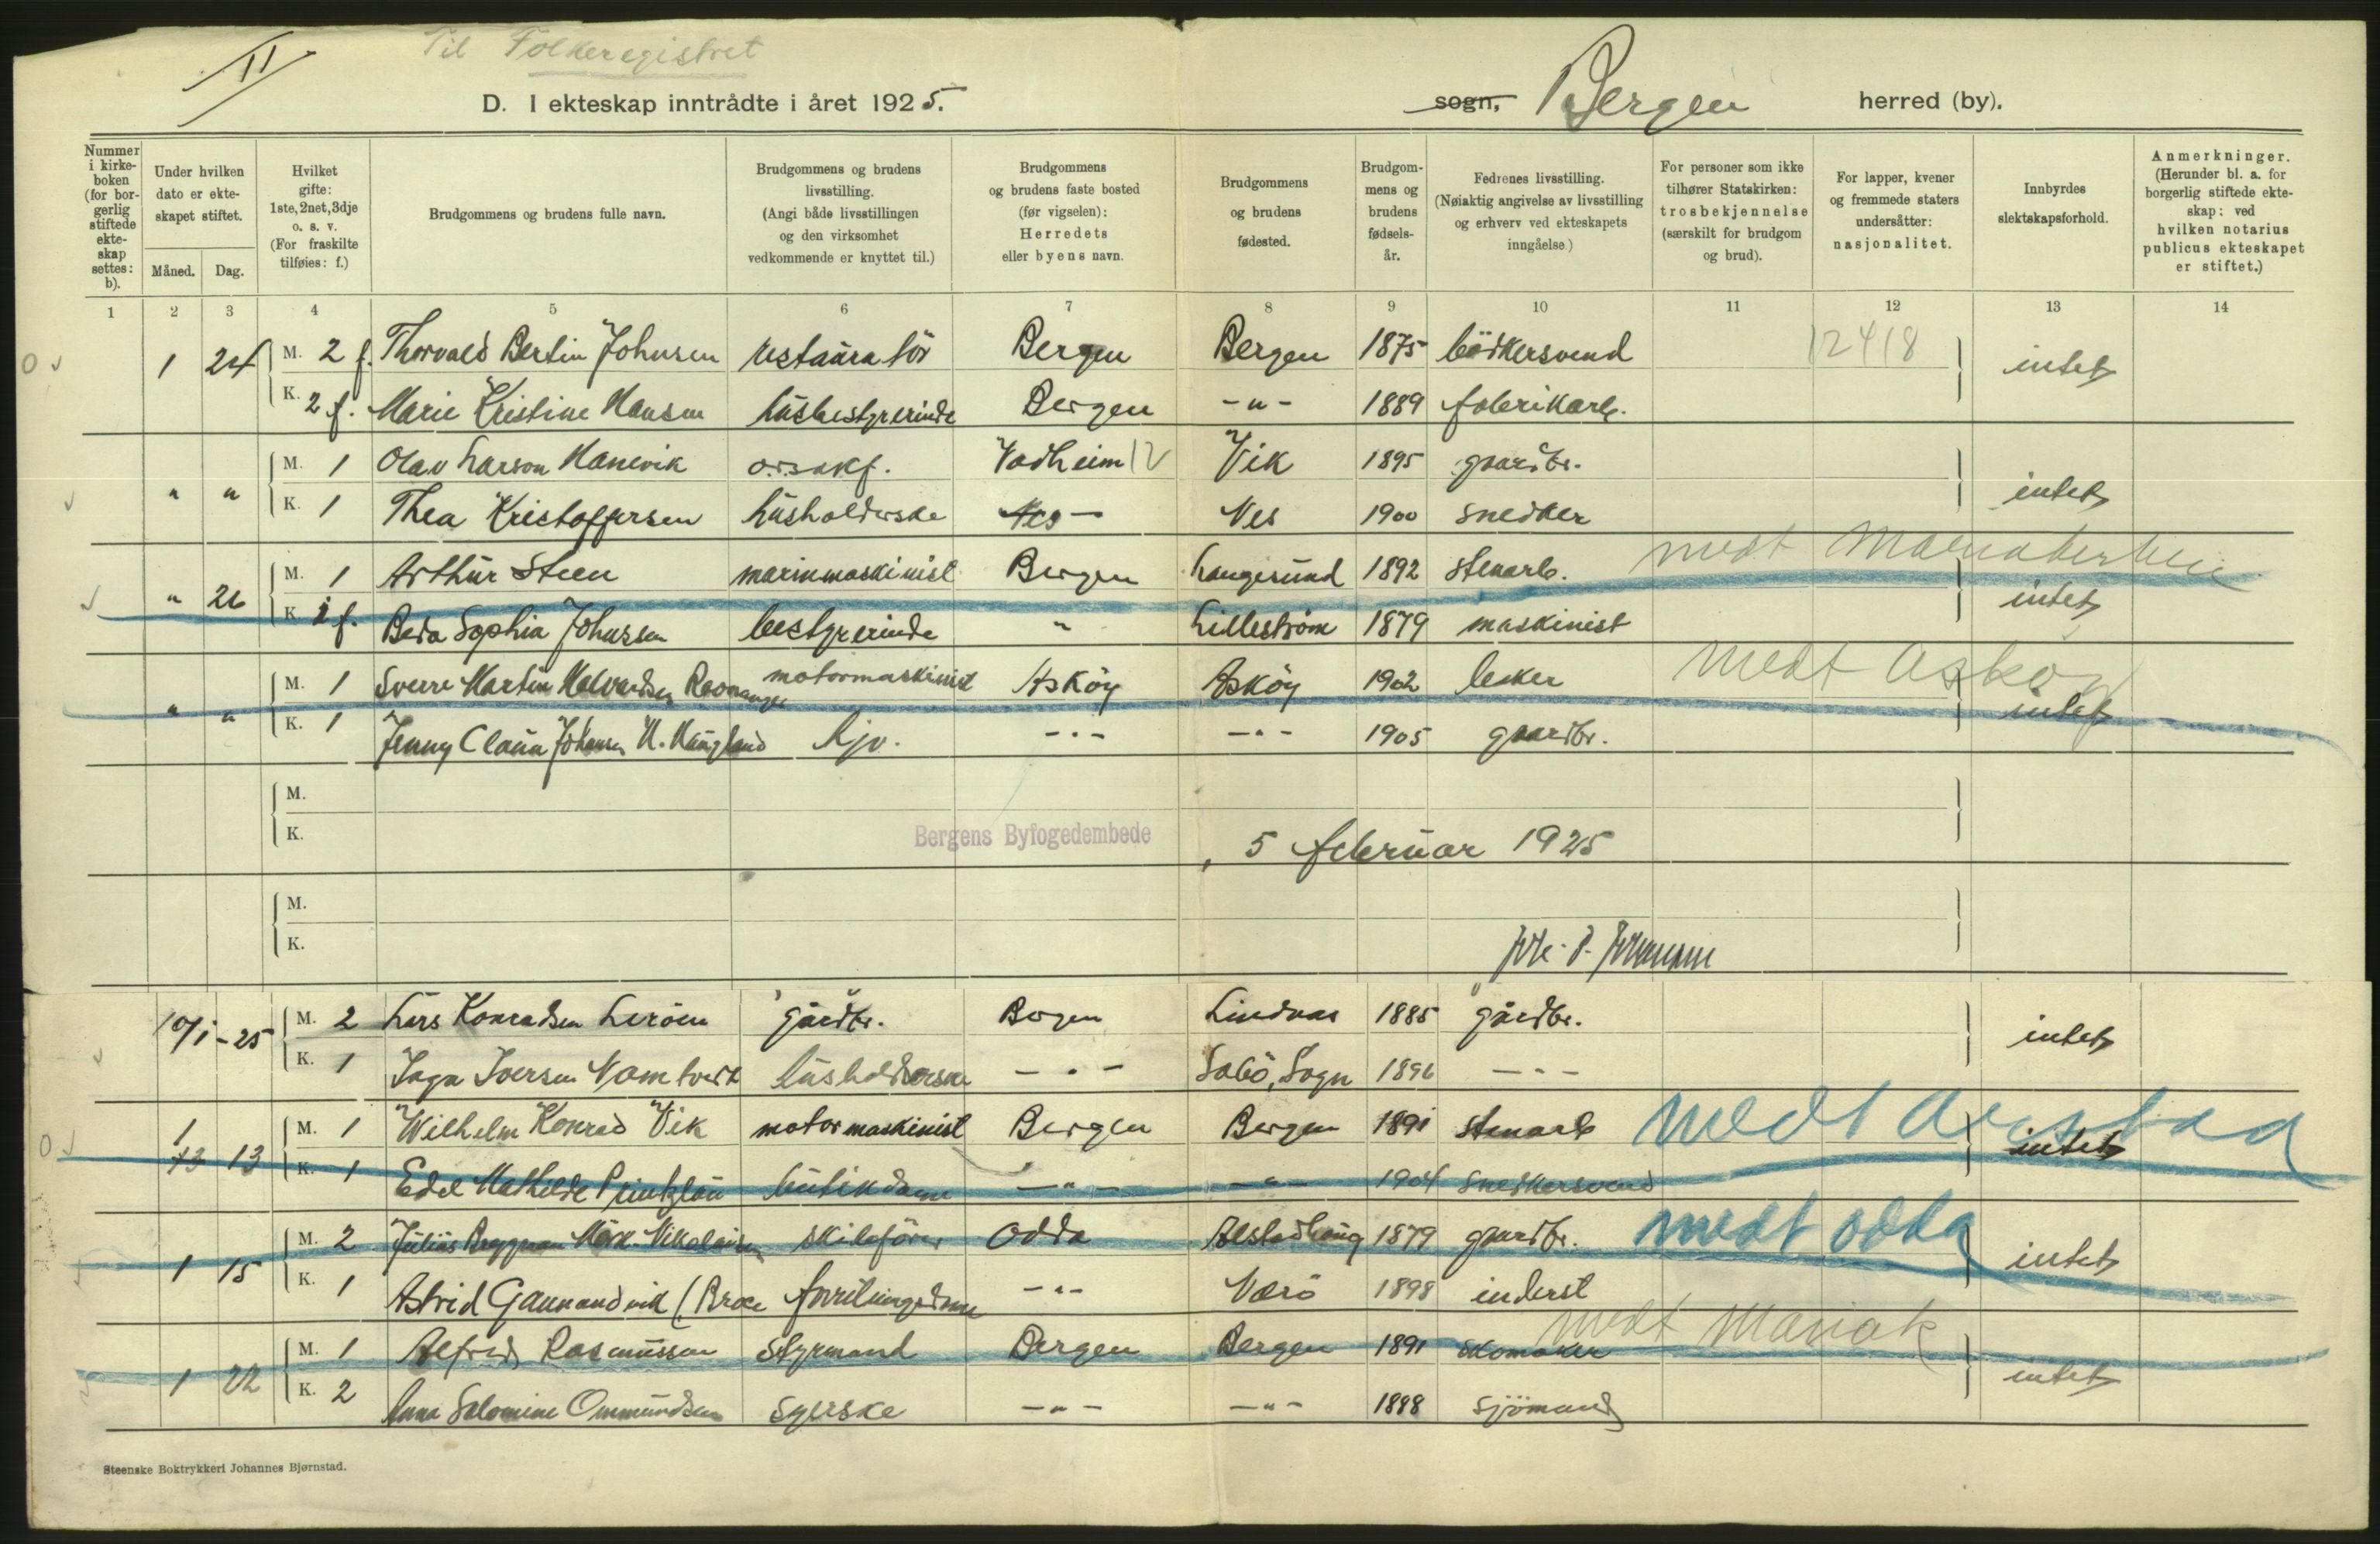 II
Til Folkeregistret
D. I ekteskap inntrådte i året 1925.
sogn, Bergen herred (by).
Nummer i kirkeboken (for borgerlig stiftede ekteskap settes: b).
Under hvilken dato er ekteskapet stiftet.
Måned. Dag.
Hvilket gifte: 1ste, 2net, 3dje o. s. v. (For fraskilte tilføies: f.)
Brudgommens og brudens fulle navn.
Brudgommens og brudens livsstilling. (Angi både livsstillingen og den virksomhet vedkommende er knyttet til.)
Brudgommens og brudens faste bosted (før vigselen): Herredets eller byens navn.
Brudgommens og brudens fødested.
Brudgommens og brudens fødselsår.
Fedrenes livsstilling. (Nøiaktig angivelse av livsstilling og erhverv ved ekteskapets inngåelse.)
For personer som ikke tilhører Statskirken: trosbekjennelse (særskilt for brudgom og brud).
For lapper, kvener og fremmede staters undersåtter: nasjonalitet.
Innbyrdes slektskapsforhold.
Anmerkninger. (Herunder bl. a. for borgerlig stiftede ekteskap: ved hvilken notarius publicus ekteskapet er stiftet.)
1 2 3 4 5 6 7 8 9 10 11 12 13 14
1 24 M. 2 f. Thorvald Bertin Johnsen restauratör Bergen Bergen 1875 bödkersvend 12418 intet
K. 2 f. Marie Kristine Hansen husbestyrerinde Bergen -"- 1889 fabrikarb.
" " M. 1 Olav Larson Hanevik o.r.sakf. Vadheim 12 Vik 1895 gaardbr. intet
K. 1 Thea Kristoffersen husholderske Nes - Nes 1900 snedker
" 26 M. 1 Arthur Steen marinmaskinist Bergen Langesund 1892 stenarb. medt Mariakirken intet
K. 1 f. Beda Sophia Johnsen bestyrerinde " Lilleström 1879 maskinist
" " M. 1 Sverre Martin Halvardsen Ravnanger motormaskinist Asköy Asköy 1902 lesker medt Asköy intet
K. 1 Jenny Clara Johansen H. Haugland hjv. -"- -"- 1905 gaardbr.
M.
K.
Bergens Byfogedembede, 5 februar 1925
M.
K.
10/1-25 M. 2 Lars Konradsen Leröen gårdbr. Bogen Lindaas 1885 gårdbr. intet
K. 1 Inga Iversen Namtvedt husholderske -"- Sabö, Sogn 1896 -"-
1 13 13 M. 1 Wilhelm Konrad Vik motormaskinist Bergen Bergen 1891 stenarb medt Aarstad intet
K. 1 Edel Mathilde Printzlau butikdame -"- -"- 1904 snedkersvend
1 15 M. 2 Julius Bryggman Mörk-Nikolaisen skibsförer Odda Alstadhaug 1879 gaardbr. medt Odda intet
K. 1 Astrid forretningsdame -"- Værö 1898 inderst
1 22 M. 1 Alfred Rasmussen Styrmand Bergen Bergen 1891 skomaker medt Mariak intet
K. 2 Anna Salomine Ommundsen syerske -"- -"- 1898 sjömand
Steenske Boktrykkeri Johannes Bjørnstad.